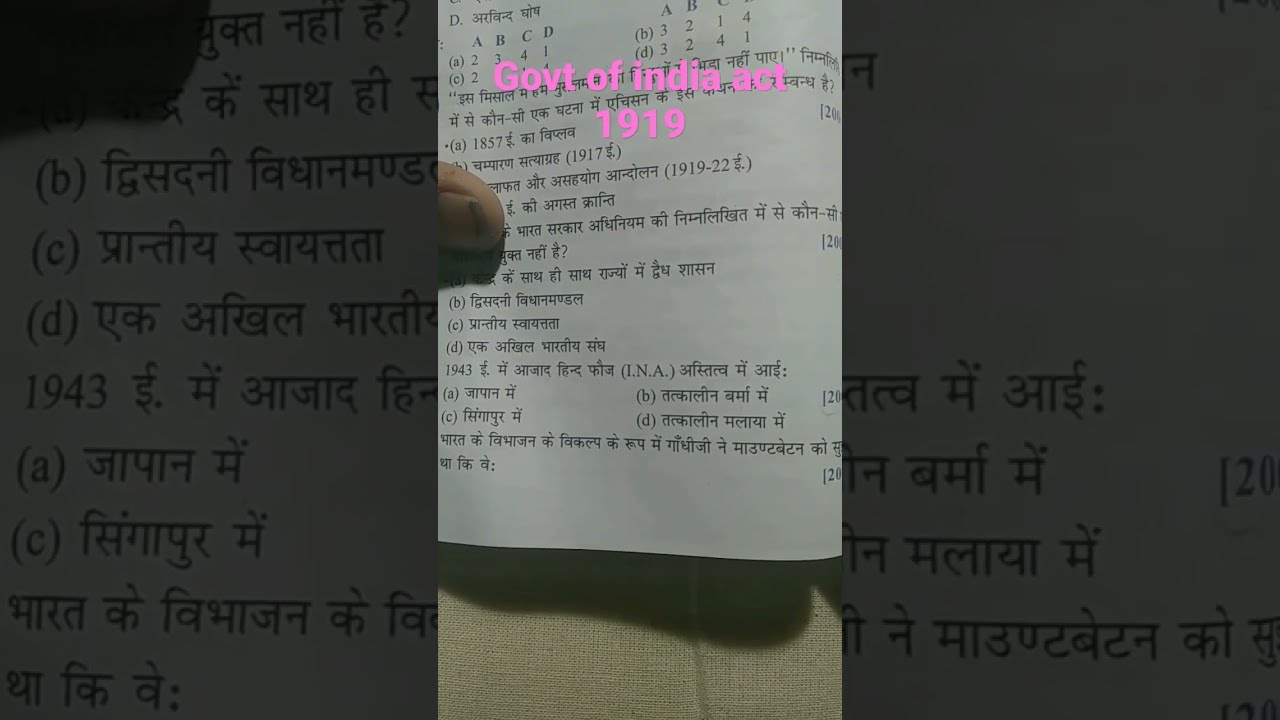 D. अरविन्द घोष
A B C D
(a) 2 3 4 1
(c) 2
A B
(b) 3 2 1 4
(d) 3 2 4 1
Govt of india act
1919
"इस मिसाल में हम नहीं पाए।"
में से कौन-सी एक घटना में एचिसन के इस है?
(a) 1857 ई. का विप्लव
चम्पारण सत्याग्रह (1917 ई.)
और असहयोग आन्दोलन (1919-22 ई.)
ई. की अगस्त क्रान्ति
के भारत सरकार अधिनियम की निम्नलिखित में से कौन-सी
नहीं है?
कें साथ ही साथ राज्यों में द्वैध शासन
(b) द्विसदनी विधानमण्डल
(c) प्रान्तीय स्वायत्तता
(d) एक अखिल भारतीय संघ
1943 ई. में आजाद हिन्द फौज (I.N.A.) अस्तित्व में आई:
(a) जापान में
(b) तत्कालीन बर्मा में
(c) सिंगापुर में
(d) तत्कालीन मलाया में
भारत के विभाजन के विकल्प के रूप में गाँधीजी ने माउण्टबेटन को
था कि वे: